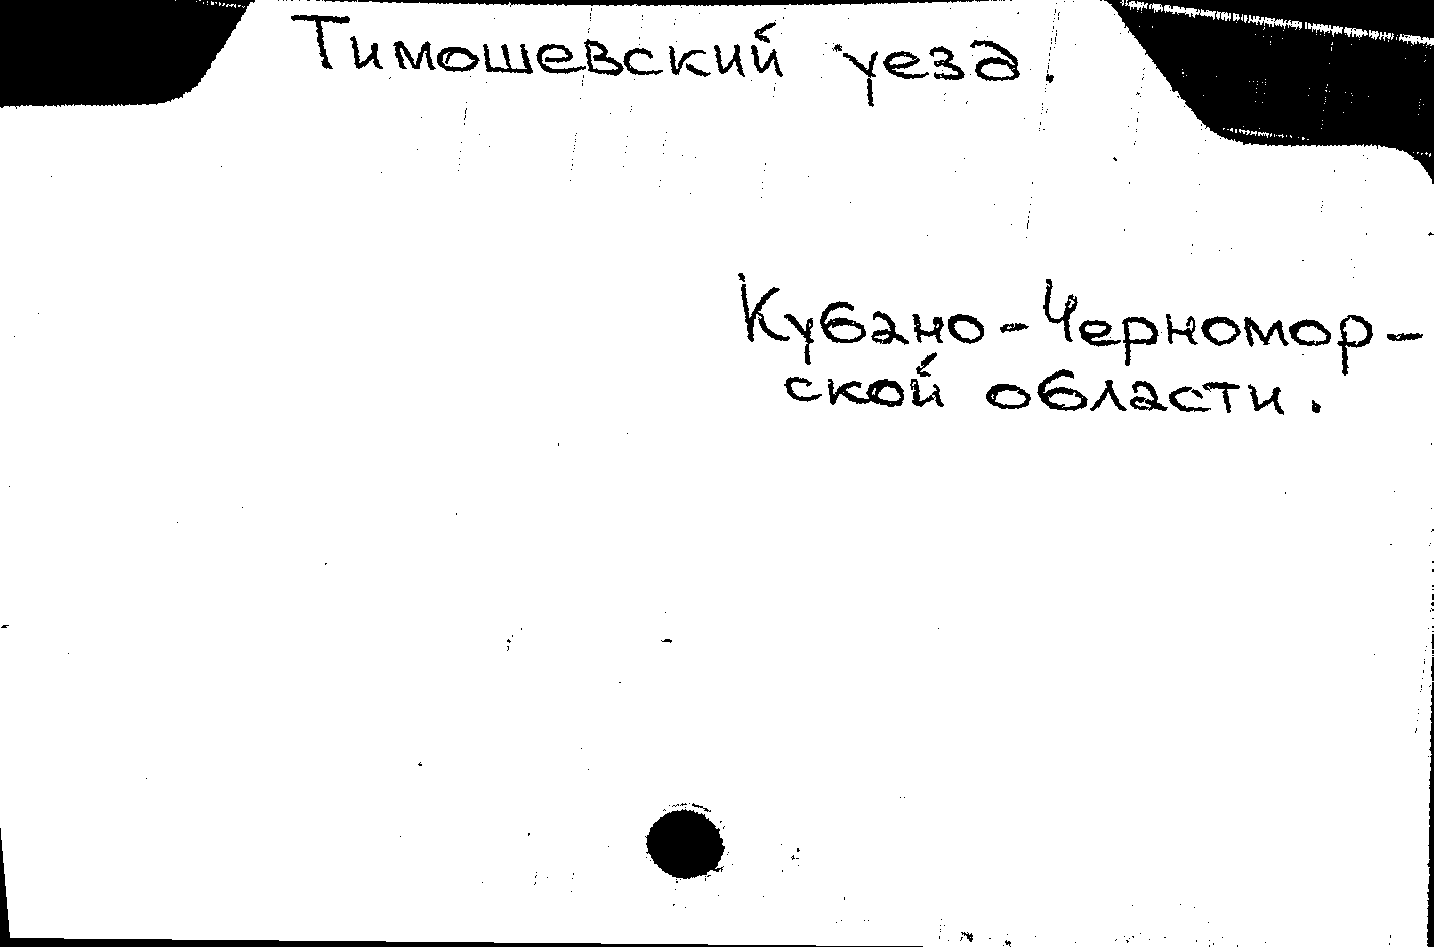 Тимошевский уезд.
Кубано-Черномор-
ской области.